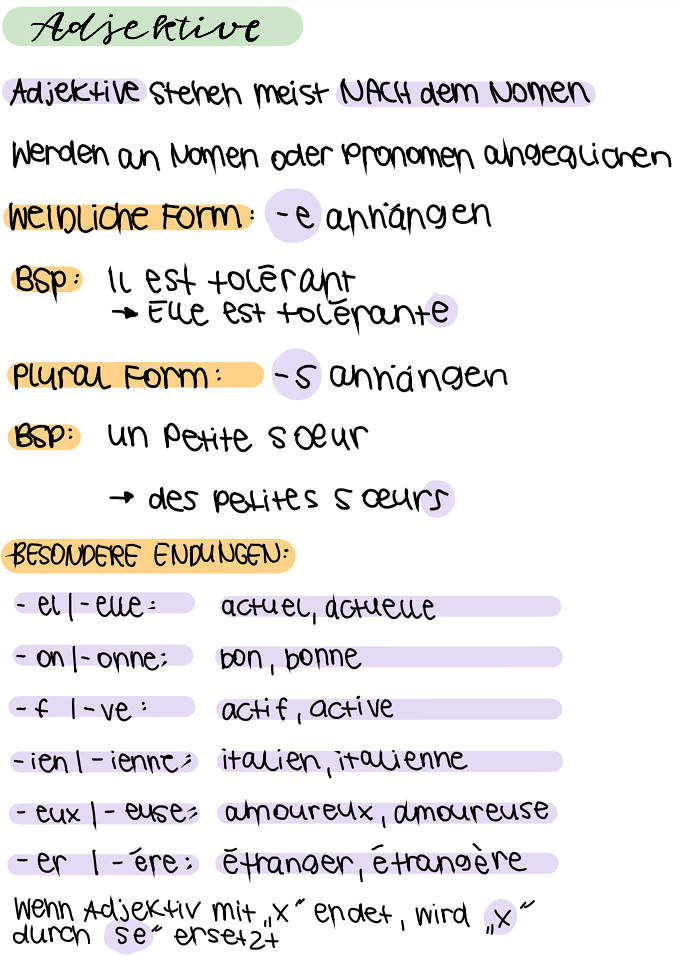 Adjektive
Adjektive stehen meist NACH dem Nomen
Werden an Nomen oder Pronomen angeglichen
Weibliche Form: -e anhängen
Bsp: Il est tolérant
→ Elle est tolérante
Plural Form: -s anhängen
Bsp: un petite sœur
→ des petites sœurs
BESONDERE ENDUNGEN:
-el | -elle: actuel, actuelle
-on | -onne: bon, bonne
-f | -ve: actif, active
-ien | -ienne: italien, italienne
-eux | -euse: amoureux, amoureuse
-er | -ère: étranger, étrangère
Wenn Adjektiv mit „x“ endet, wird „x“
durch se“ ersetzt